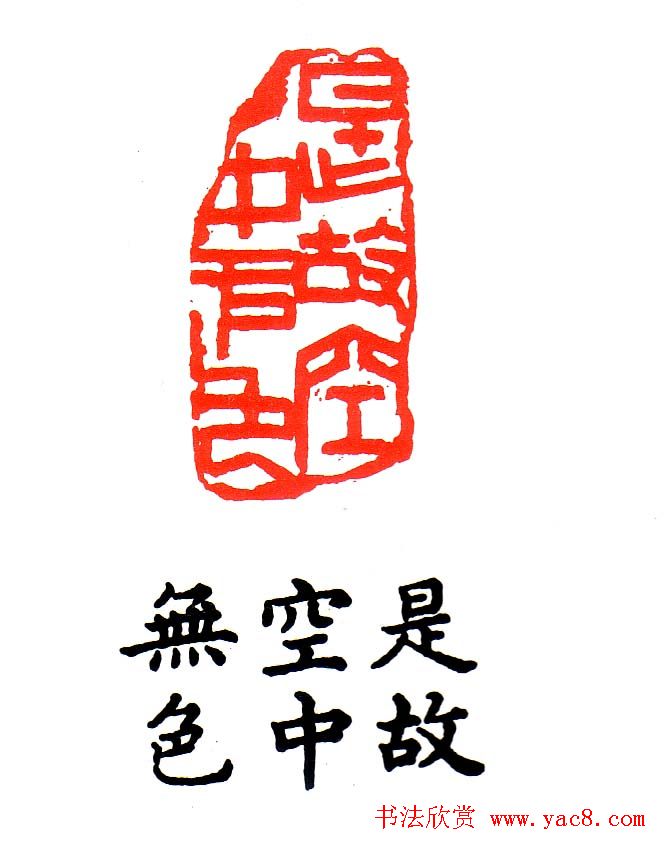 是故空
中色
是故
空中
無色
书法欣赏 www.yac8.com